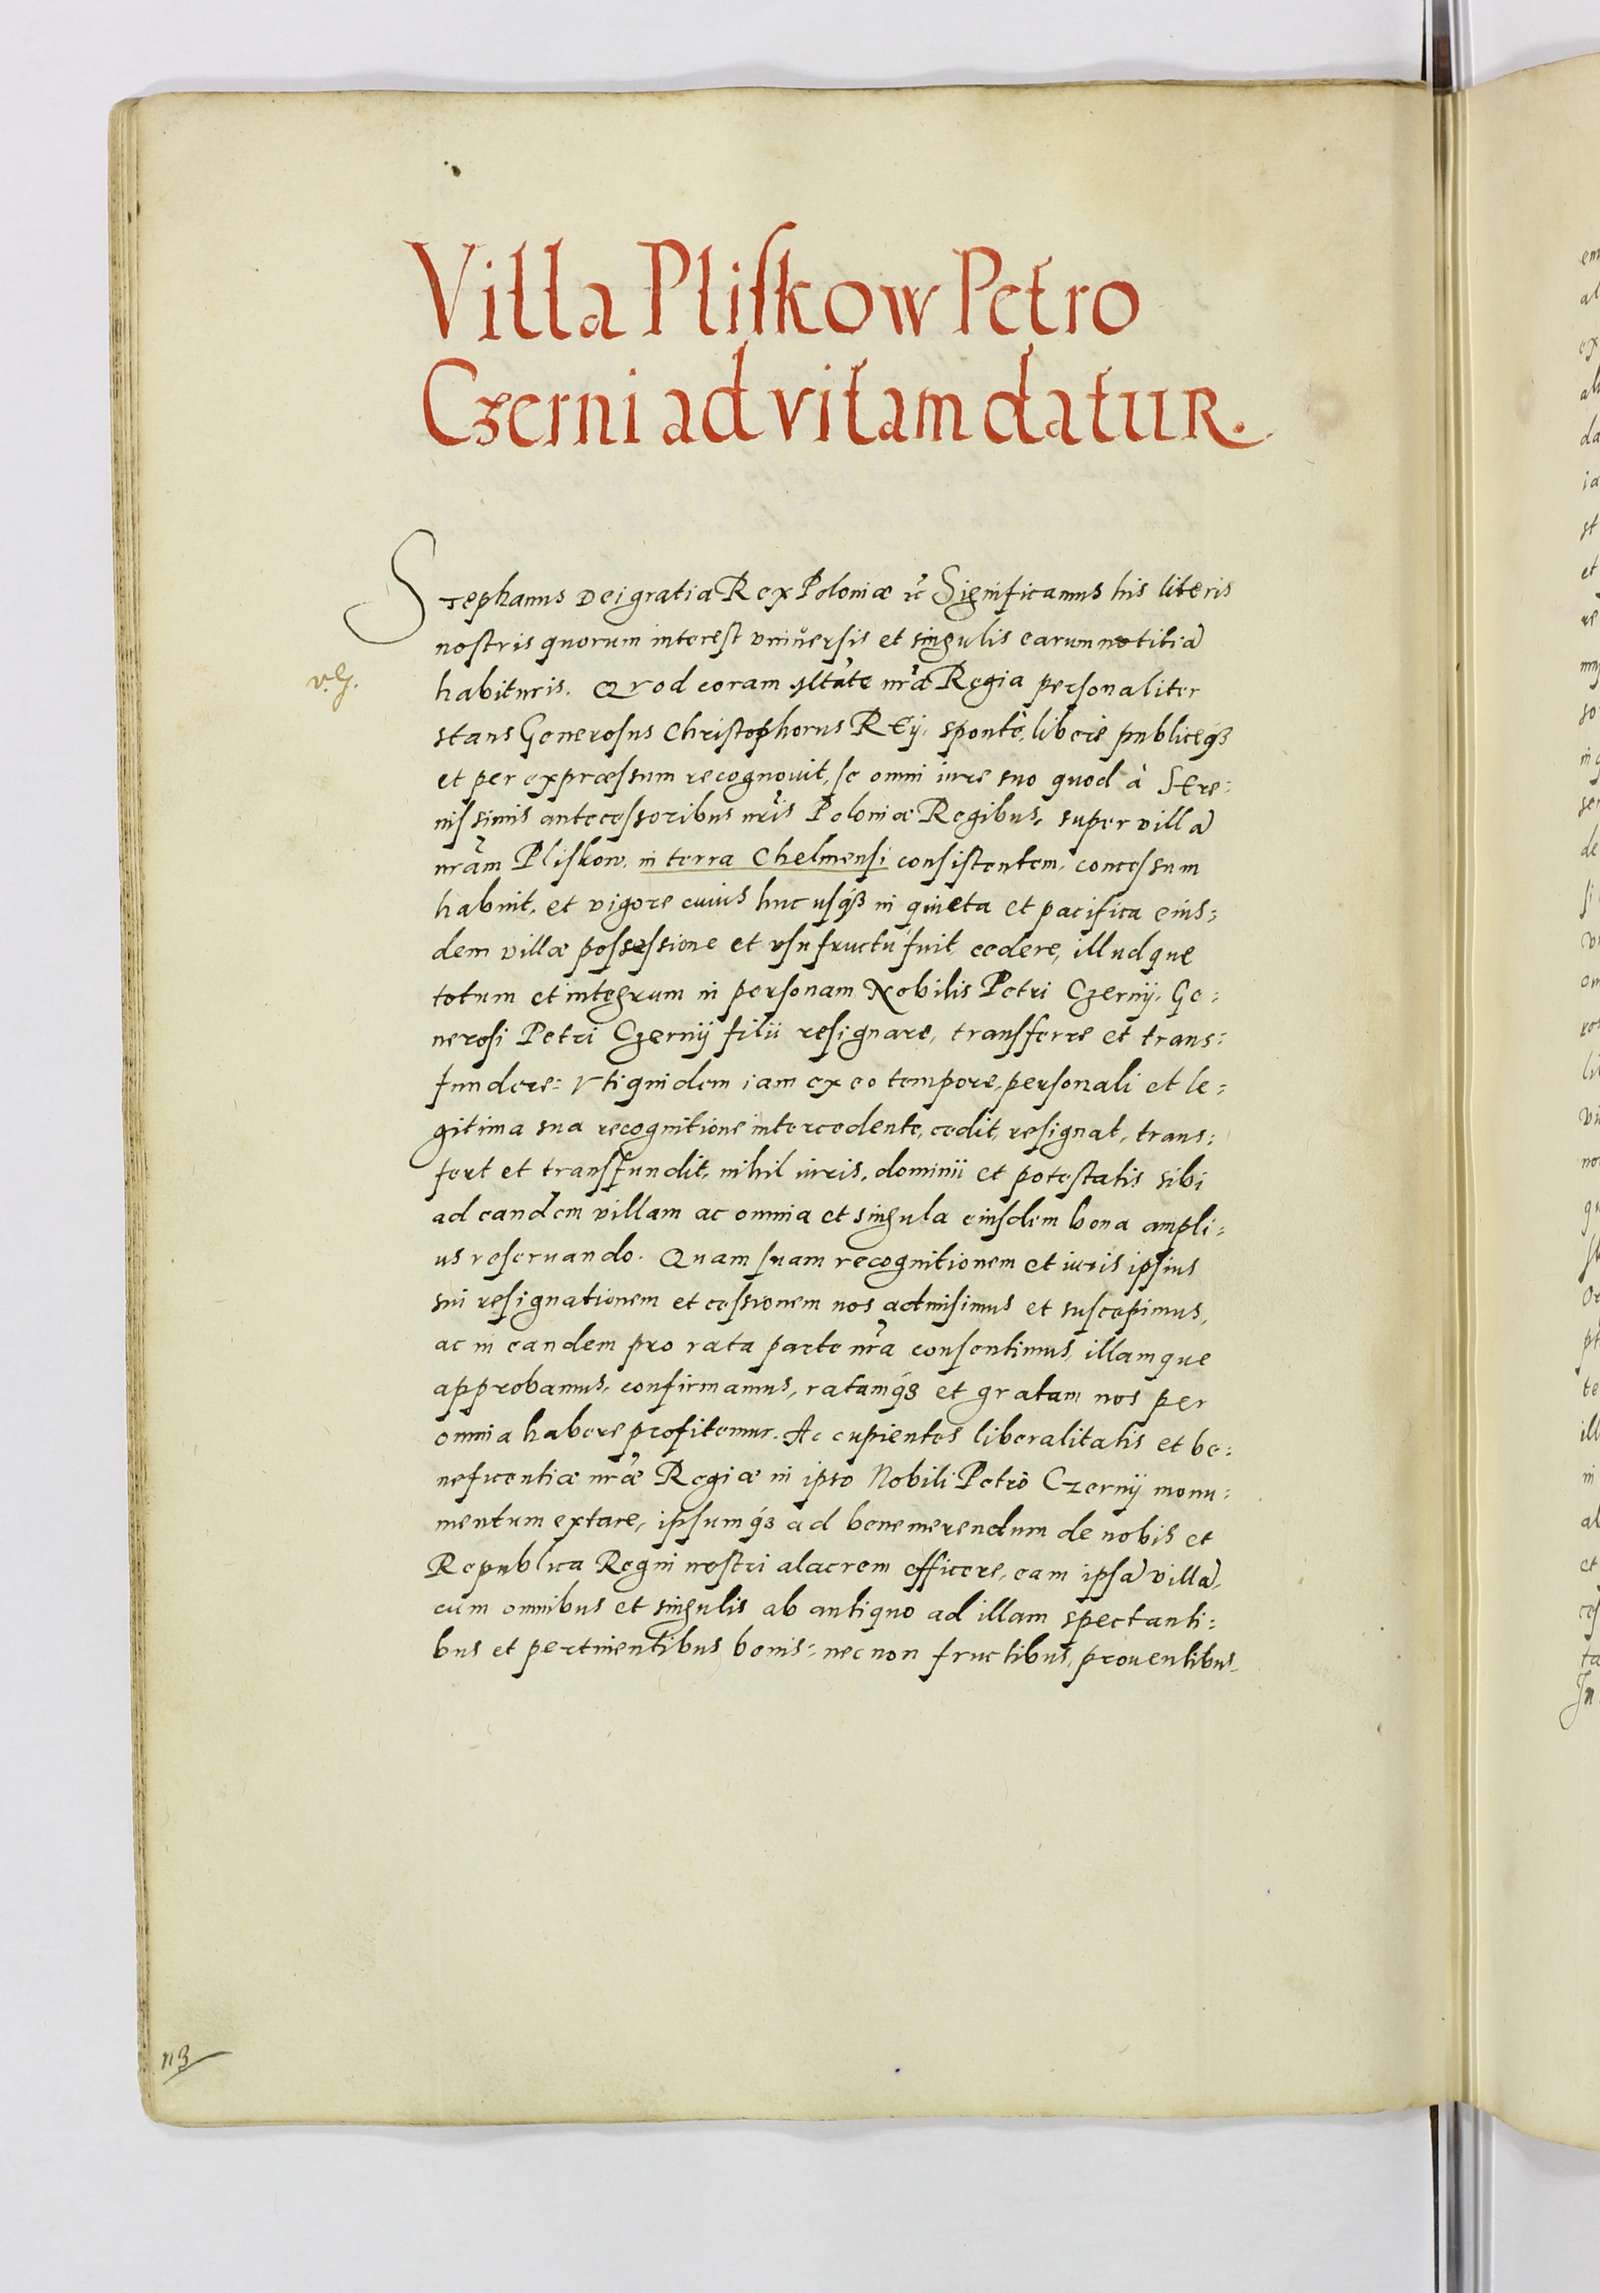 Villa Pliſkow Petro
Czerni ad vitam datur.
Stephanus Dei gratia Rex Poloniæ &c̃ Significamus his literis
nostris quorum interest vniuersis et singulis earum notitiã
habituris. Quod coram Mtate nrã Regia personaliter
v. G.
stans Generosus Christophorus Reÿ, spontè, liberè publiceq3
et per expræssum recognouit, se omni iure suo quod à Sere:
nissimis antecessoribus nrĩs Poloniæ Regibus, super villã
nrãm Pliskow, in terra Chelmensi consistentem, concessum
habuit, et vigore cuius huc usq3 in quieta et pacifica eius:
dem villæ possessione et vsufructu fuit cedere, illudque
totum et integrum in personam Nobilis Petri Czernij, Ge:
nerosi Petri Czernij filii resignare, transferre et trans:
fundere: Vti quidem iam ex eo tempore, personali et le:
gitima sua recognitione intercedente, cedit, resignat, trans:
fert et transfundit, nihil iuris, dominii et potestatis sibi
ad eandem villam ac omnia et singula eiusdem bona ampli:
us reseruando. Quam suam recognitionem et iuris ipsius
sui resignationem et cessionem nos admisimus et suscepimus,
ac in eandem pro rata parte nrã consentimus, illamque
approbamus, confirmamus, ratamq3 et gratam nos per
omnia habere profitemur. Ac cupientes liberalitatis et be:
neficentiæ nræ̃ Regiæ in ipso Nobili Petro Czernij monu:
mentum extare, ipsumq3 ad benemerendum de nobis et
Republica Regni nostri alacrem efficere, eam ipsã villã,
cum omnibus et singulis ab antiquo ad illam spectanti:
bus et pertinentibus bonis: nec non fructibus, prouentibus,
113